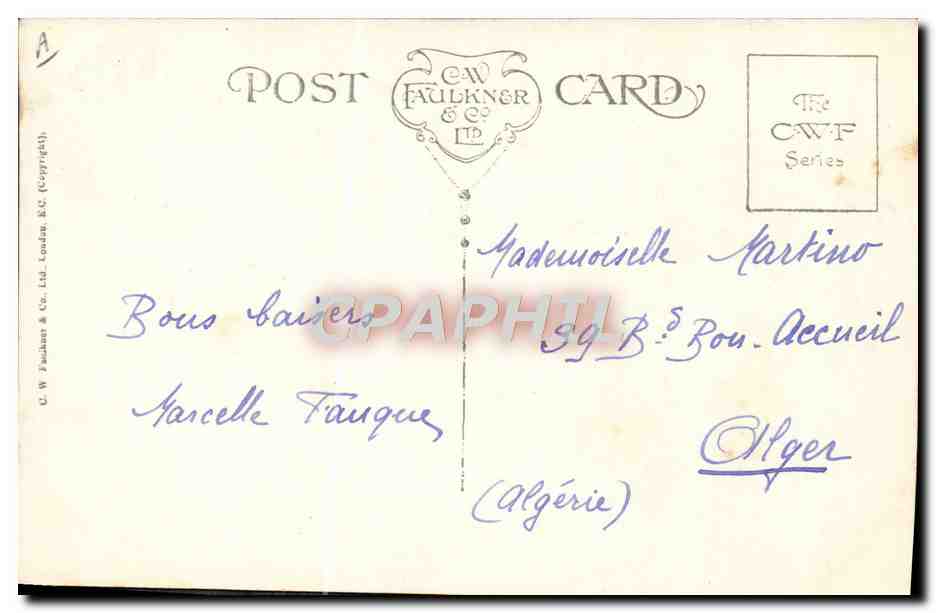 A
POST CARD
C.W
FAULKNER
& Co.
LTD
The
C.W.F
Series
C. W. Faulkner & Co., Ltd., London, E.C. (Copyright).
CPAPHIL
Bons baisers
Marcelle Fauque
Mademoiselle Martino
39 Bd Bon-Accueil
Alger
(Algérie)